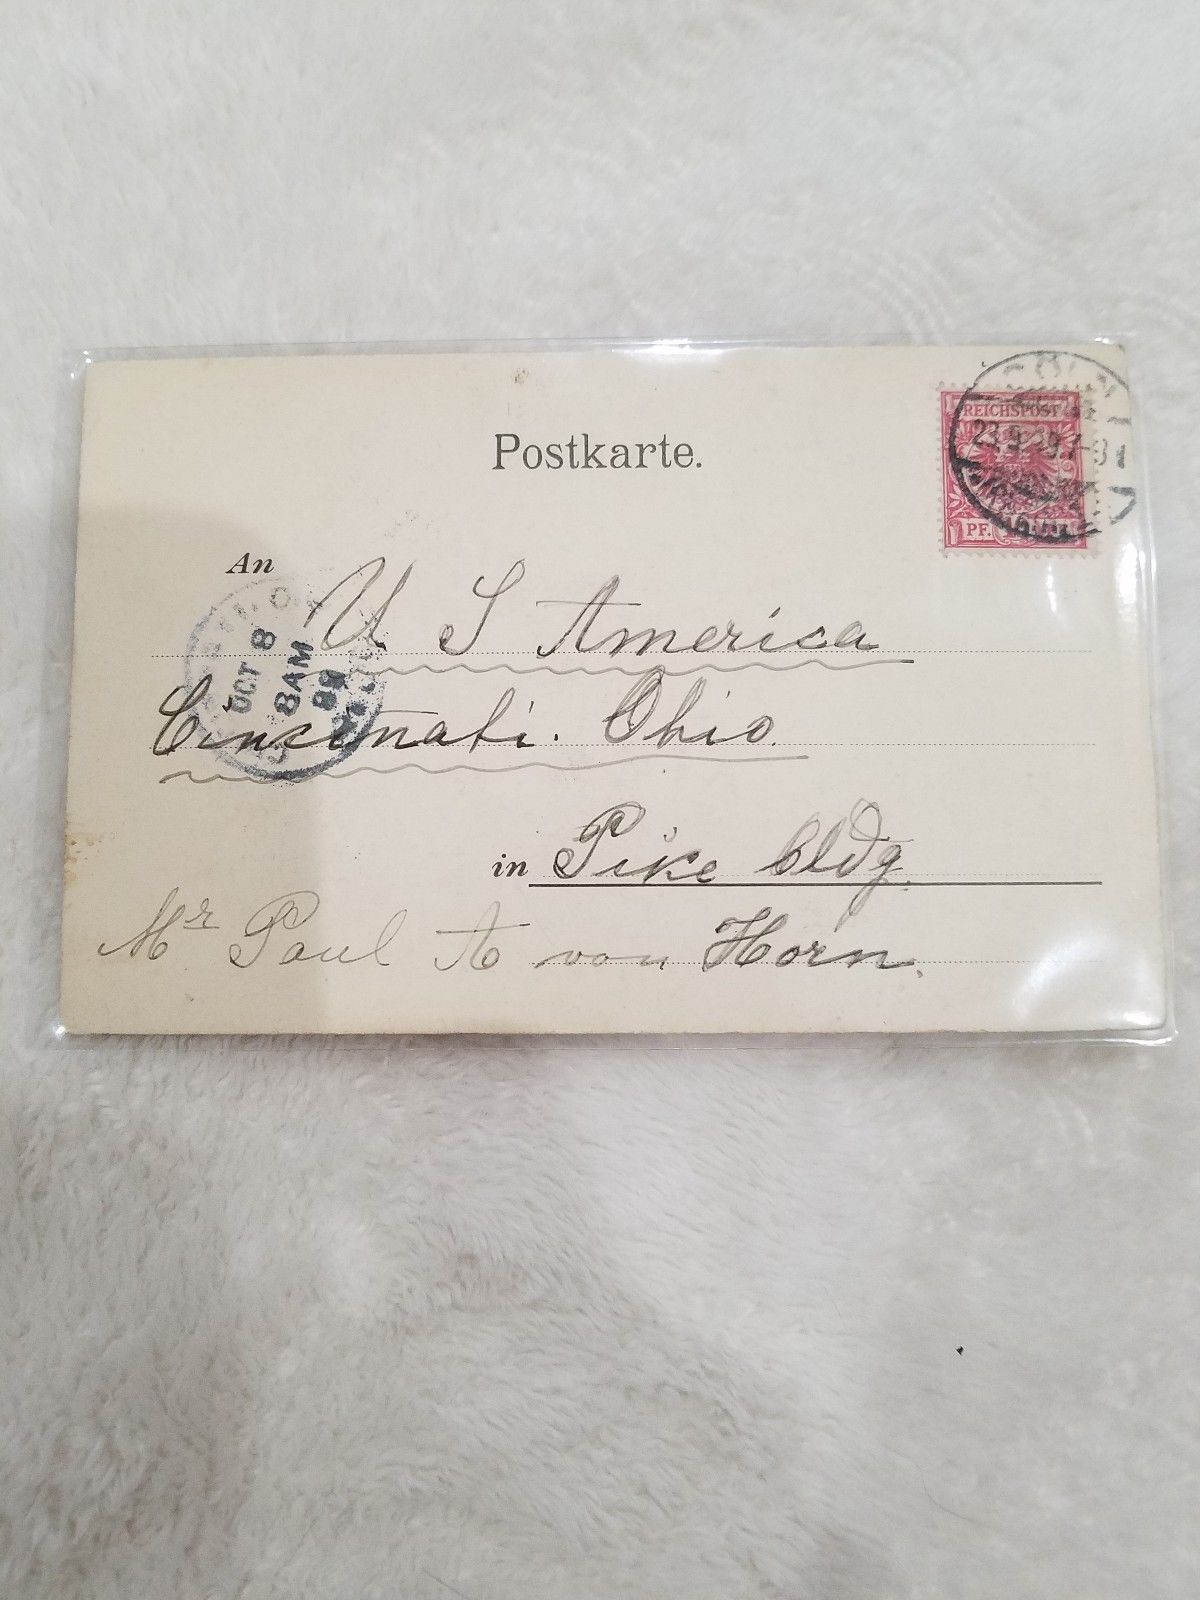 Postkarte.
CÖLN
REICHSPOST
PF.
An
U S America
OCT 8
8 AM
99
Cincinati. Ohio.
in Pike bldg.
Mr Paul A von Horn.